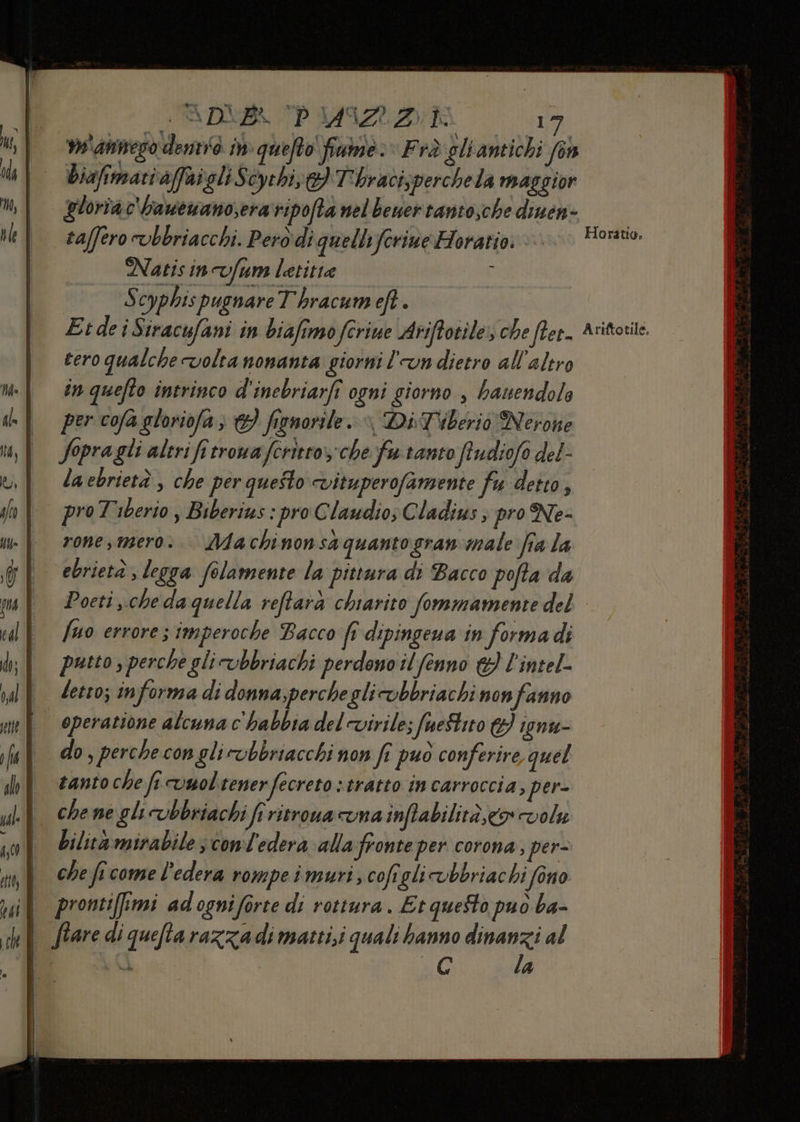 DE PAZZI. 17
m'annego dentro in questo fiume. Frà gli antichi son
biasimati assai gli Scythi, & Thraci, perche la maggior
gloria c'haueuano, era riposta nel beuer tanto, che diuen-
tassero vbbriacchi. Però di quelli scriue Horatio.
Horatio.
Natis in vsum letitiæ
Scyphis pugnare Thracum est.
Et de i Siracusani in biasimo scriue Aristotile, che stet-
Aristotile.
tero qualche volta nonanta giorni l'vn dietro all'altro
in questo intrinco d'inebriarsi ogni giorno, hauendola
per cosa gloriosa, & signorile. Di Tiberio Nerone
sopra gli altri si troua scritto, che fu tanto studioso del-
la ebrietà, che per questo vituperosamente fu detto,
pro Tiberio, Biberius: pro Claudio, Cladius, pro Ne-
rone, mero. Ma chi non sà quanto gran male sia la
ebrietà, legga solamente la pittura di Bacco posta da
Poeti, che da quella restarà chiarito sommamente del
suo errore; imperoche Bacco si dipingeua in forma di
putto, perche gli vbbriachi perdono il senno & l'intel-
letto; in forma di donna, perche gli vbbriachi non fanno
operatione alcuna c'habbia del virile; suestito & ignu-
do, perche con gli vbbriacchi non si può conferire, quel
tanto che si vuol tener secreto: tratto in carroccia, per-
che ne gli vbbriachi si ritroua vna instabilità, & volu
bilità mirabile; con l'edera alla fronte per corona, per-
che si come l'edera rompe i muri, cosi gli vbbriachi sono
prontissimi ad ogni sorte di rottura. Et questo può ba-
stare di questa razza di matti, i quali hanno dinanzi al
C la